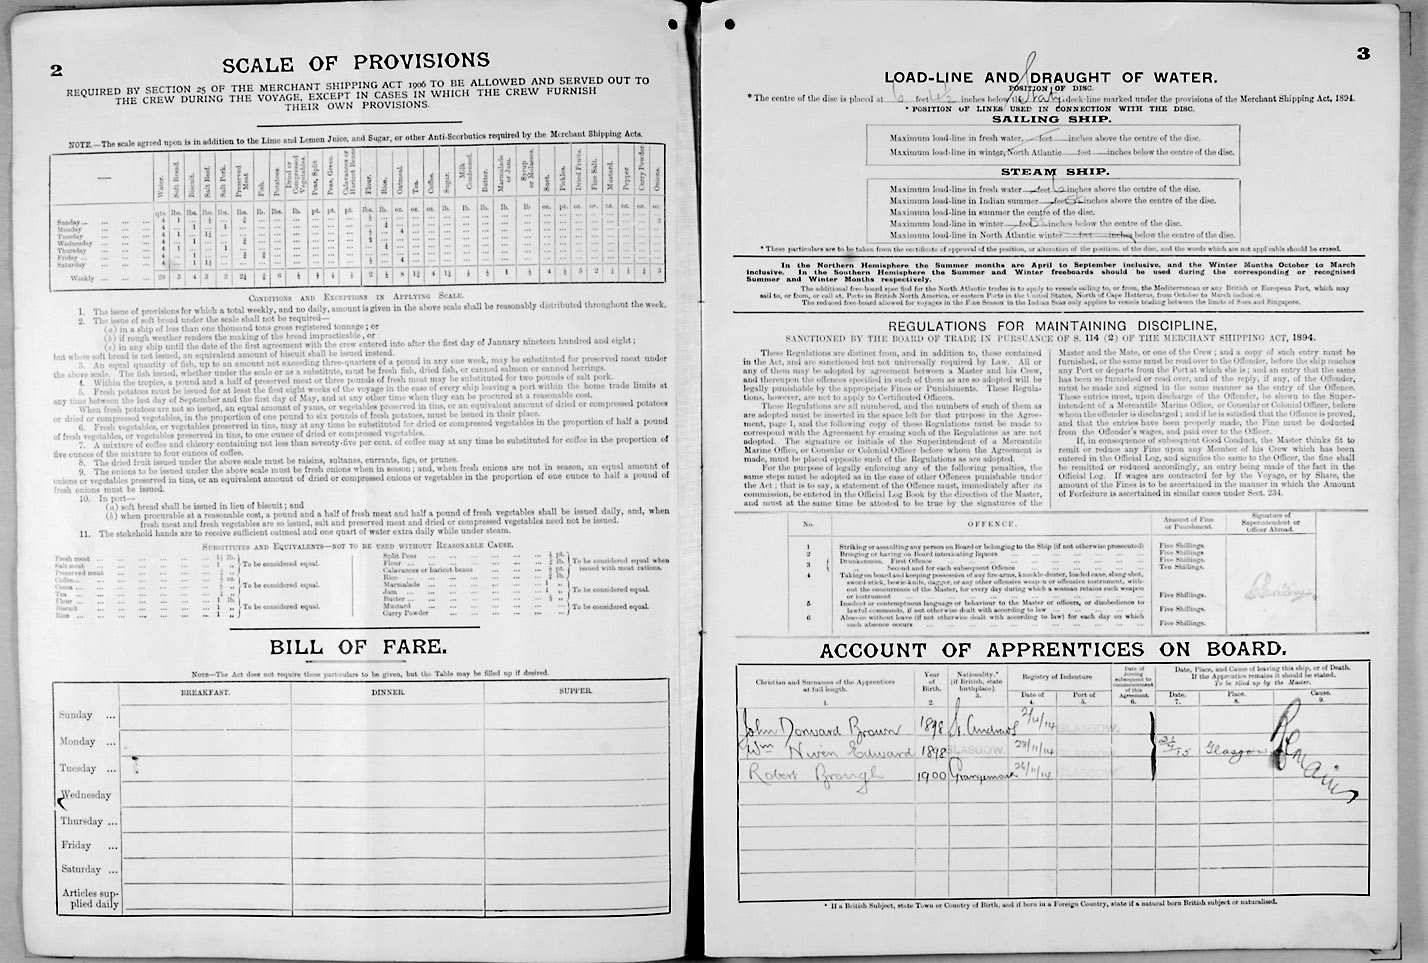 2
SCALE OF PROVISIONS
REQUIRED BY SECTION 25 OF THE MERCHANT SHIPPING ACT 1906 TO BE ALLOWED AND SERVED OUT TO
THE CREW DURING THE VOYAGE, EXCEPT IN CASES IN WHICH THE CREW FURNISH
THEIR OWN PROVISIONS.
NOTE.—The scale agreed upon is in addition to the Lime and Lemon Juice, and Sugar, or other Anti-Scorbutics required by the Merchant Shipping Acts.
Water. Soft Bread. Biscuit. Salt Beef. Salt Pork. Preserved Meat Fish. Potatoes. Dried or Compressed Vegetables. Peas, Split Peas, Green. Calavances or Haricot Beans Flour. Rice. Oatmeal. Tea. Coffee. Sugar. Milk Condensed. Butter. Marmalade or Jam. Syrup or Molasses. Suet. Pickles. Dried Fruits. Fine Salt. Mustard. Pepper Curry Powder. Onions.
Sunday
Monday
Tuesday
Wednesday
Thursday
Friday
Saturday
Weekly
CONDITIONS AND EXCEPTIONS IN APPLYING SCALE.
1. The issue of provisions for which a total weekly, and no daily, amount is given in the above scale shall be reasonably distributed throughout the week.
2. The issue of soft bread under the scale shall not be required—
(a) in a ship of less than one thousand tons gross registered tonnage; or
(b) if rough weather renders the making of the bread impracticable, or
(c) in any ship until the date of the first agreement with the crew entered into after the first day of January nineteen hundred and eight;
but where soft bread is not issued, an equivalent amount of biscuit shall be issued instead.
3. An equal quantity of fish, up to an amount not exceeding three-quarters of a pound in any one week, may be substituted for preserved meat under
the above scale. The fish issued, whether under the scale or as a substitute, must be fresh fish, dried fish, or canned salmon or canned herrings.
4. Within the tropics, a pound and a half of preserved meat or three pounds of fresh meat may be substituted for two pounds of salt pork.
5. Fresh potatoes must be issued for at least the first eight weeks of the voyage in the case of every ship leaving a port within the home trade limits at
any time between the last day of September and the first day of May, and at any other time when they can be procured at a reasonable cost.
When fresh potatoes are not so issued, an equal amount of yams, or vegetables preserved in tins, or an equivalent amount of dried or compressed potatoes
or dried or compressed vegetables, in the proportion of one pound to six pounds of fresh potatoes, must be issued in their place.
6. Fresh vegetables, or vegetables preserved in tins, may at any time be substituted for dried or compressed vegetables in the proportion of half a pound
of fresh vegetables, or vegetables preserved in tins, to one ounce of dried or compressed vegetables.
7. A mixture of coffee and chicory containing not less than seventy-five per cent. of coffee may at any time be substituted for coffee in the proportion of
five ounces of the mixture to four ounces of coffee.
8. The dried fruit issued under the above scale must be raisins, sultanas, currants, figs, or prunes.
9. The onions to be issued under the above scale must be fresh onions when in season; and, when fresh onions are not in season, an equal amount of
onions or vegetables preserved in tins, or an equivalent amount of dried or compressed onions or vegetables in the proportion of one ounce to half a pound of
fresh onions must be issued.
10. In port—
(a) soft bread shall be issued in lieu of biscuit; and
(b) when procurable at a reasonable cost, a pound and a half of fresh meat and half a pound of fresh vegetables shall be issued daily, and, when
fresh meat and fresh vegetables are so issued, salt and preserved meat and dried or compressed vegetables need not be issued.
11. The stokehold hands are to receive sufficient oatmeal and one quart of water extra daily while under steam.
SUBSTITUTES AND EQUIVALENTS—NOT TO BE USED WITHOUT REASONABLE CAUSE.
Fresh meat
Salt meat
Preserved meat
To be considered equal.
Coffee
Cocoa
Tea
To be considered equal.
Flour
Biscuit
Rice
To be considered equal.
Split Peas
Flour
Calavances or haricot beans
Rice
To be considered equal when issued with meat rations.
Marmalade
Jam
Butter
To be considered equal.
Mustard
Curry Powder
To be considered equal.
BILL OF FARE.
NOTE—The Act does not require these particulars to be given, but the Table may be filled up if desired.
BREAKFAST. DINNER. SUPPER.
Sunday ...
Monday ...
Tuesday ...
Wednesday
Thursday ...
Friday ...
Saturday ...
Articles sup-
plied daily
3
LOAD-LINE AND DRAUGHT OF WATER.
POSITION OF DISC.
* The centre of the disc is placed at 6 feet 4½ inches below the deck-line marked under the provisions of the Merchant Shipping Act, 1894.
* POSITION OF LINES USED IN CONNECTION WITH THE DISC.
SAILING SHIP.
Maximum load-line in fresh water, feet inches above the centre of the disc.
Maximum load-line in winter, North Atlantic feet inches below the centre of the disc.
STEAM SHIP.
Maximum load-line in fresh water feet 6 inches above the centre of the disc.
Maximum load-line in Indian summer feet inches above the centre of the disc.
Maximum load-line in summer the centre of the disc.
Maximum load-line in winter feet inches below the centre of the disc.
Maximum load-line in North Atlantic winter feet inches below the centre of the disc.
* These particulars are to be taken from the certificate of approval of the position, or alteration of the position, of the disc, and the words which are not applicable should be erased.
In the Northern Hemisphere the Summer months are April to September inclusive, and the Winter Months October to March
inclusive. In the Southern Hemisphere the Summer and Winter freeboards should be used during the corresponding or recognised
Summer and Winter Months respectively.
The additional free-board specified for the North Atlantic trades is to apply to vessels sailing to, or from, the Mediterranean or any British or European Port, which may
sail to, or from, or call at, Ports in British North America, or eastern Ports in the United States, North of Cape Hatteras, from October to March inclusive.
The reduced free-board allowed for voyages in the Fine Season in the Indian Seas only applies to vessels trading between the limits of Suez and Singapore.
REGULATIONS FOR MAINTAINING DISCIPLINE,
SANCTIONED BY THE BOARD OF TRADE IN PURSUANCE OF S. 114 (2) OF THE MERCHANT SHIPPING ACT, 1894.
These Regulations are distinct from, and in addition to, those contained
in the Act, and are sanctioned but not universally required by Law. All or
any of them may be adopted by agreement between a Master and his Crew,
and thereupon the offences specified in such of them as are so adopted will be
legally punishable by the appropriate Fines or Punishments. These Regula-
tions, however, are not to apply to Certificated Officers.
These Regulations are all numbered, and the numbers of such of them as
are adopted must be inserted in the space left for that purpose in the Agree-
ment, page 1, and the following copy of these Regulations must be made to
correspond with the Agreement by erasing such of the Regulations as are not
adopted. The signature or initials of the Superintendent of a Mercantile
Marine Office, or Consular or Colonial Officer before whom the Agreement is
made, must be placed opposite such of the Regulations as are adopted.
For the purpose of legally enforcing any of the following penalties, the
same steps must be adopted as in the case of other Offences punishable under
the Act; that is to say, a statement of the Offence must, immediately after its
commission, be entered in the Official Log Book by the direction of the Master,
and must at the same time be attested to be true by the signatures of the
Master and the Mate, or one of the Crew; and a copy of such entry must be
furnished, or the same must be read over to the Offender, before the ship reaches
any Port or departs from the Port at which she is; and an entry that the same
has been so furnished or read over, and of the reply, if any, of the Offender,
must be made and signed in the same manner as the entry of the Offence.
These entries must, upon discharge of the Offender, be shewn to the Super-
intendent of a Mercantile Marine Office, or Consular or Colonial Officer, before
whom the Offender is discharged; and if he is satisfied that the Offence is proved,
and that the entries have been properly made, the Fine must be deducted
from the Offender's wages, and paid over to the Officer.
If, in consequence of subsequent Good Conduct, the Master thinks fit to
remit or reduce any Fine upon any Member of his Crew which has been
entered in the Official Log, and signifies the same to the Officer, the fine shall
be remitted or reduced accordingly, an entry being made of the fact in the
Official Log. If wages are contracted for by the Voyage, or by Share, the
amount of the Fines is to be ascertained in the manner in which the Amount
of Forfeiture is ascertained in similar cases under Sect. 234.
No. OFFENCE. Amount of Fine or Punishment. Signature of Superintendent or Officer Abroad.
1 Striking or assaulting any person on Board or belonging to the Ship (if not otherwise prosecuted) Five Shillings.
2 Bringing or having on Board intoxicating liquors Five Shillings
3 Drunkenness. First Offence Five Shillings.
Second and for each subsequent Offence Ten Shillings.
4 Taking on board and keeping possession of any fire-arms, knuckle-duster, loaded cane, slung-shot,
sword-stick, bowie-knife, dagger, or any other offensive weapon or offensive instrument, with-
out the concurrence of the Master, for every day during which a seaman retains such weapon
or instrument Five Shillings.
5 Insolent or contemptuous language or behaviour to the Master or officers, or disobedience to
lawful commands, if not otherwise dealt with according to law Five Shillings.
6 Absence without leave (if not otherwise dealt with according to law) for each day on which
such absence occurs Five Shillings.
ACCOUNT OF APPRENTICES ON BOARD.
Christian and Surnames of the Apprentices at full length. Year of Birth. Nationality.* [if British, state birthplace]. Registry of Indenture Date of Port of Date of Joining subsequent to commencement of this Agreement. Date, Place, and Cause of leaving this ship, or of Death. If the Apprentice remains it should be stated. To be filled up by the Master. Date. Place. Cause.
1. 2. 3. 4. 5. 6. 7. 8. 9.
John Dorward Brown 1898 St. Andrews 2/4/14 GLASGOW.
Wm Niven Edward 1898 GLASGOW. 23/11/14 GLASGOW. Glasgow Remains
Robert Brough 1900 Grangemouth 26/11/14 GLASGOW
* If a British Subject, state Town or Country of Birth, and if born in a Foreign Country, state if a natural born British subject or naturalised.